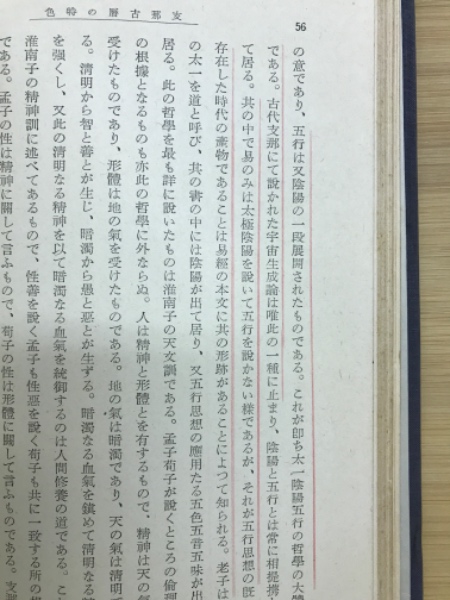 支那古曆の特色
56
の意であり、五行は又陰陽の一段展開されたものである。これが卽ち太一陰陽五行の哲學の大體
である。古代支那にて說かれた宇宙生成論は唯此の一種に止まり、陰陽と五行とは常に相提携し
て居る。其の中で易のみは太極陰陽を說いて五行を說かない樣であるが、それが五行思想の旣
存在した時代の產物であることは易經の本文に其の形跡があることによつて知られる。老子は
の太一を道と呼び、其の書の中には陰陽が出て居り、又五行思想の應用たる五色五音五味が出
居る。此の哲學を最も詳に說いたものは淮南子の天文訓である。孟子荀子が說くところの倫理
の根據となるものも亦此の哲學に外ならぬ。人は精神と形體とを有するもので、精神は天の氣
受けたものであり、形體は地の氣を受けたものである。地の氣は暗濁であり、天の氣は淸明
る。淸明から智と善とが生じ、暗濁から愚と惡とが生ずる。暗濁なる血氣を鎭めて淸明なる精
を强くし、又此の淸明なる精神を以て暗濁なる血氣を統御するのは人間修養の道である。こ
淮南子の精神訓に述べてあるもので、性善を說く孟子も性惡を說く荀子も共に一致する所の
である。孟子の性は精神に關して言ふもので、荀子の性は形體に關して言ふものである。支